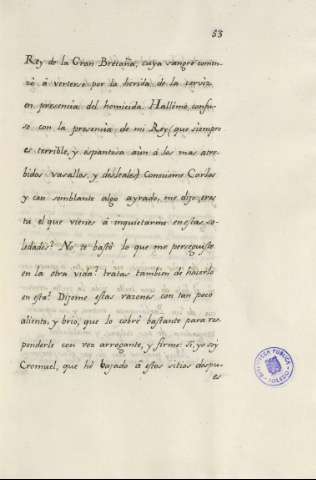 53
Rey de la Gran Bretaña, cuya sangre comen-
zó á verterse por la herida de la cerviz
en presencia del homicida. Hallème confu-
so con la presencia de mi Rey (que siempre
es terrible, y espantosa aùn á los mas atre-
bidos vasallos, y desleales) Conocióme Carlos
y con semblante algo ayrado, me dijo, eres
tu el que vienes á inquietarme en estas so-
ledades? No te bastó lo que me perseguiste
en la otra vida? tratas tambien de hacerlo
en esta? Dijome estas razones con tan poco
aliento, y brio, que lo cobré bastante para res-
ponderle con voz arrogante, y firme: sí, yo soy
Cromuel, que hé bajado á estos sitios despu-
es
BIBLIOTECA PUBLICA
TOLEDO